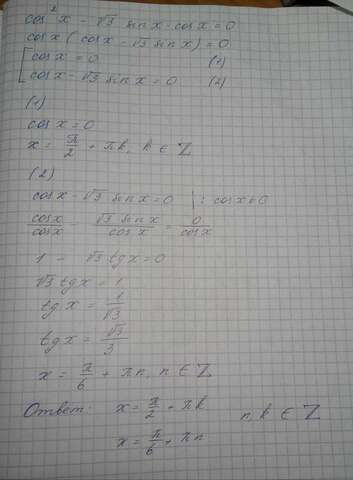 cos²x - √3 sin x · cos x = 0
cos x (cos x - √3 sin x) = 0
[ cos x = 0 (1)
cos x - √3 sin x = 0 (2)
(1)
cos x = 0
x = π/2 + πk, k ∈ Z
(2)
cos x - √3 sin x = 0 | : cos x ≠ 0
cos x/cos x - √3 sin x/cos x = 0/cos x
1 - √3 tg x = 0
√3 tg x = 1
tg x = 1/√3
tg x = √3/3
x = π/6 + πn, n ∈ Z
Ответ: x = π/2 + πk
n, k ∈ Z
x = π/6 + πn